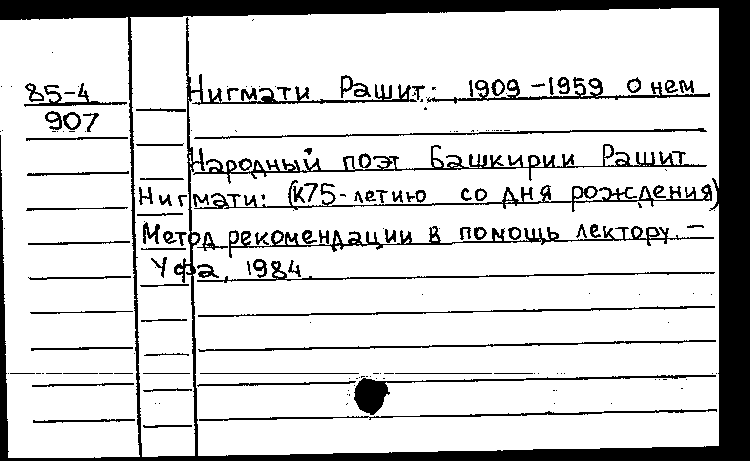 85-4 Нигмати Рашит: 1909-1959 о нем
907
Народный поэт Башкирии Рашит
Нигмати: (К75-летию со дня рождения)
Метод. рекомендации в помощь лектору. -
Уфа, 1984.